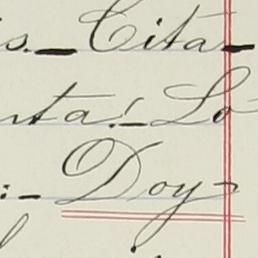 s._Cita-
nta!_Lo
:_Doy=